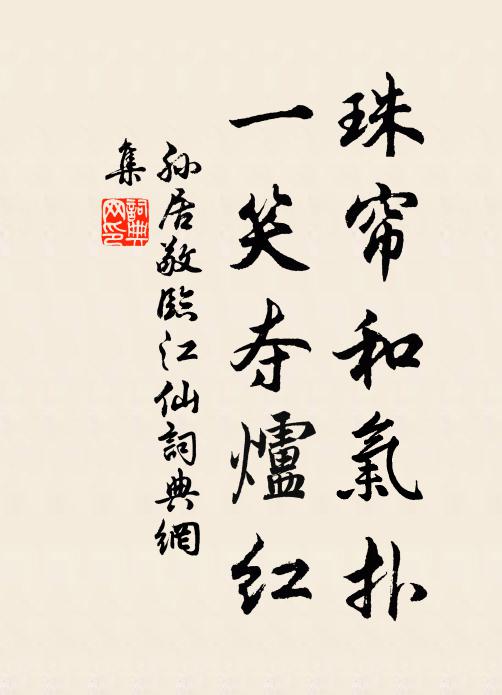 珠帘和氣扑
一笑夺爐红
孙居敬臨江仙詞典網
集
詞典
网印